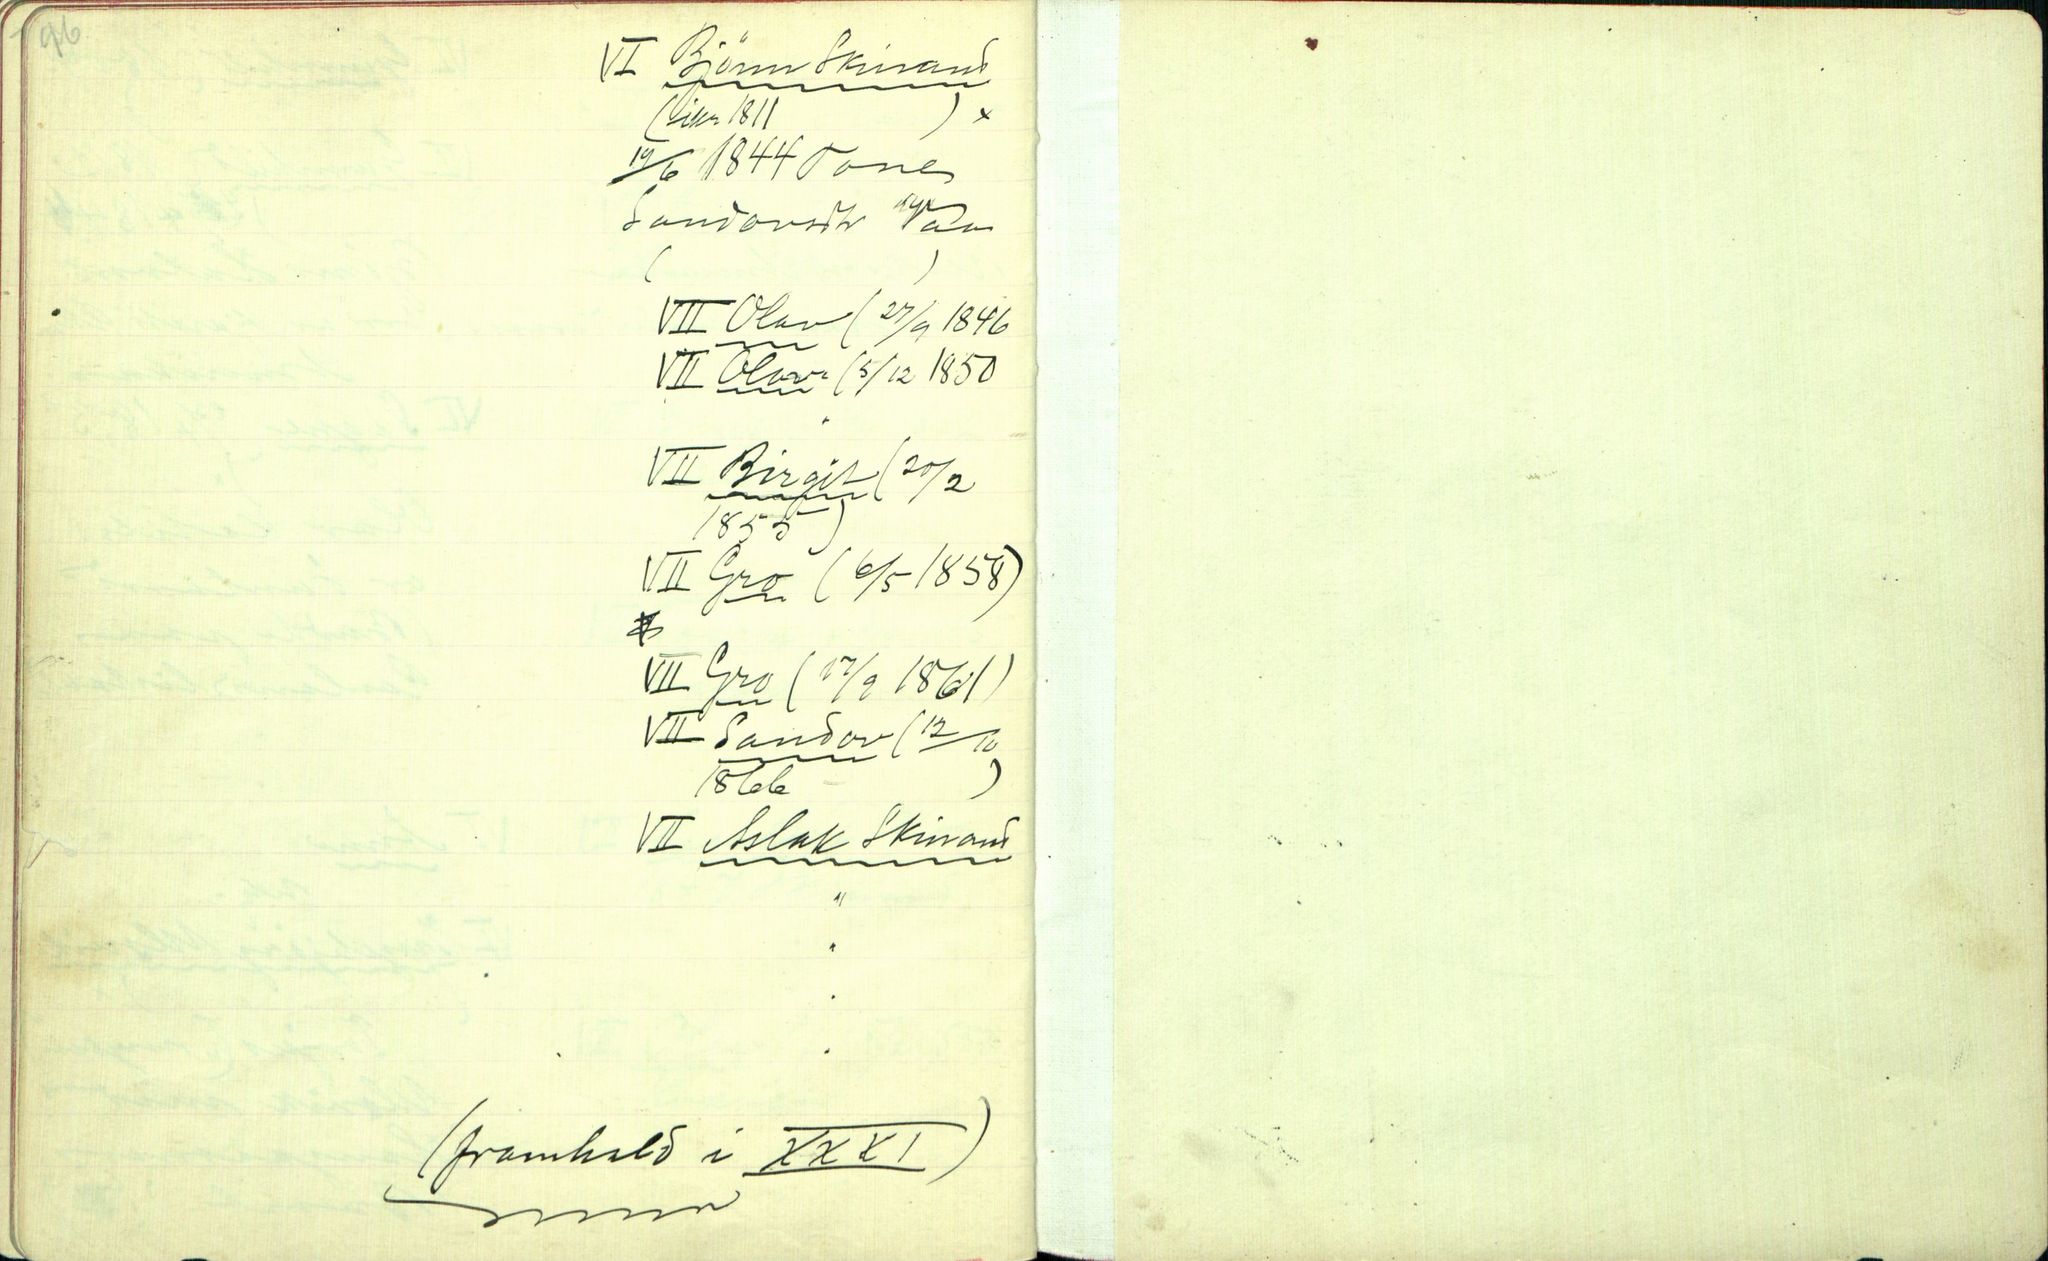 96
VI Björn Skinand
(1811 ) x
19/6 1844 Tone
Sandovsdtr
( )
VII Olav (27/9 1846
VII Olav (5/12 1850
"
VII Birgit (20/2
1855)
VII Gro (6/5 1858)
VII Gro (17/9 1861)
VII Sandov (12/10
1866 )
VII Aslak Skinand
"
"
(framhald i XXXI)